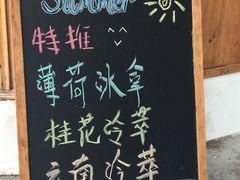 Summer
特推
薄荷冰拿
桂花冷萃
云南冷萃